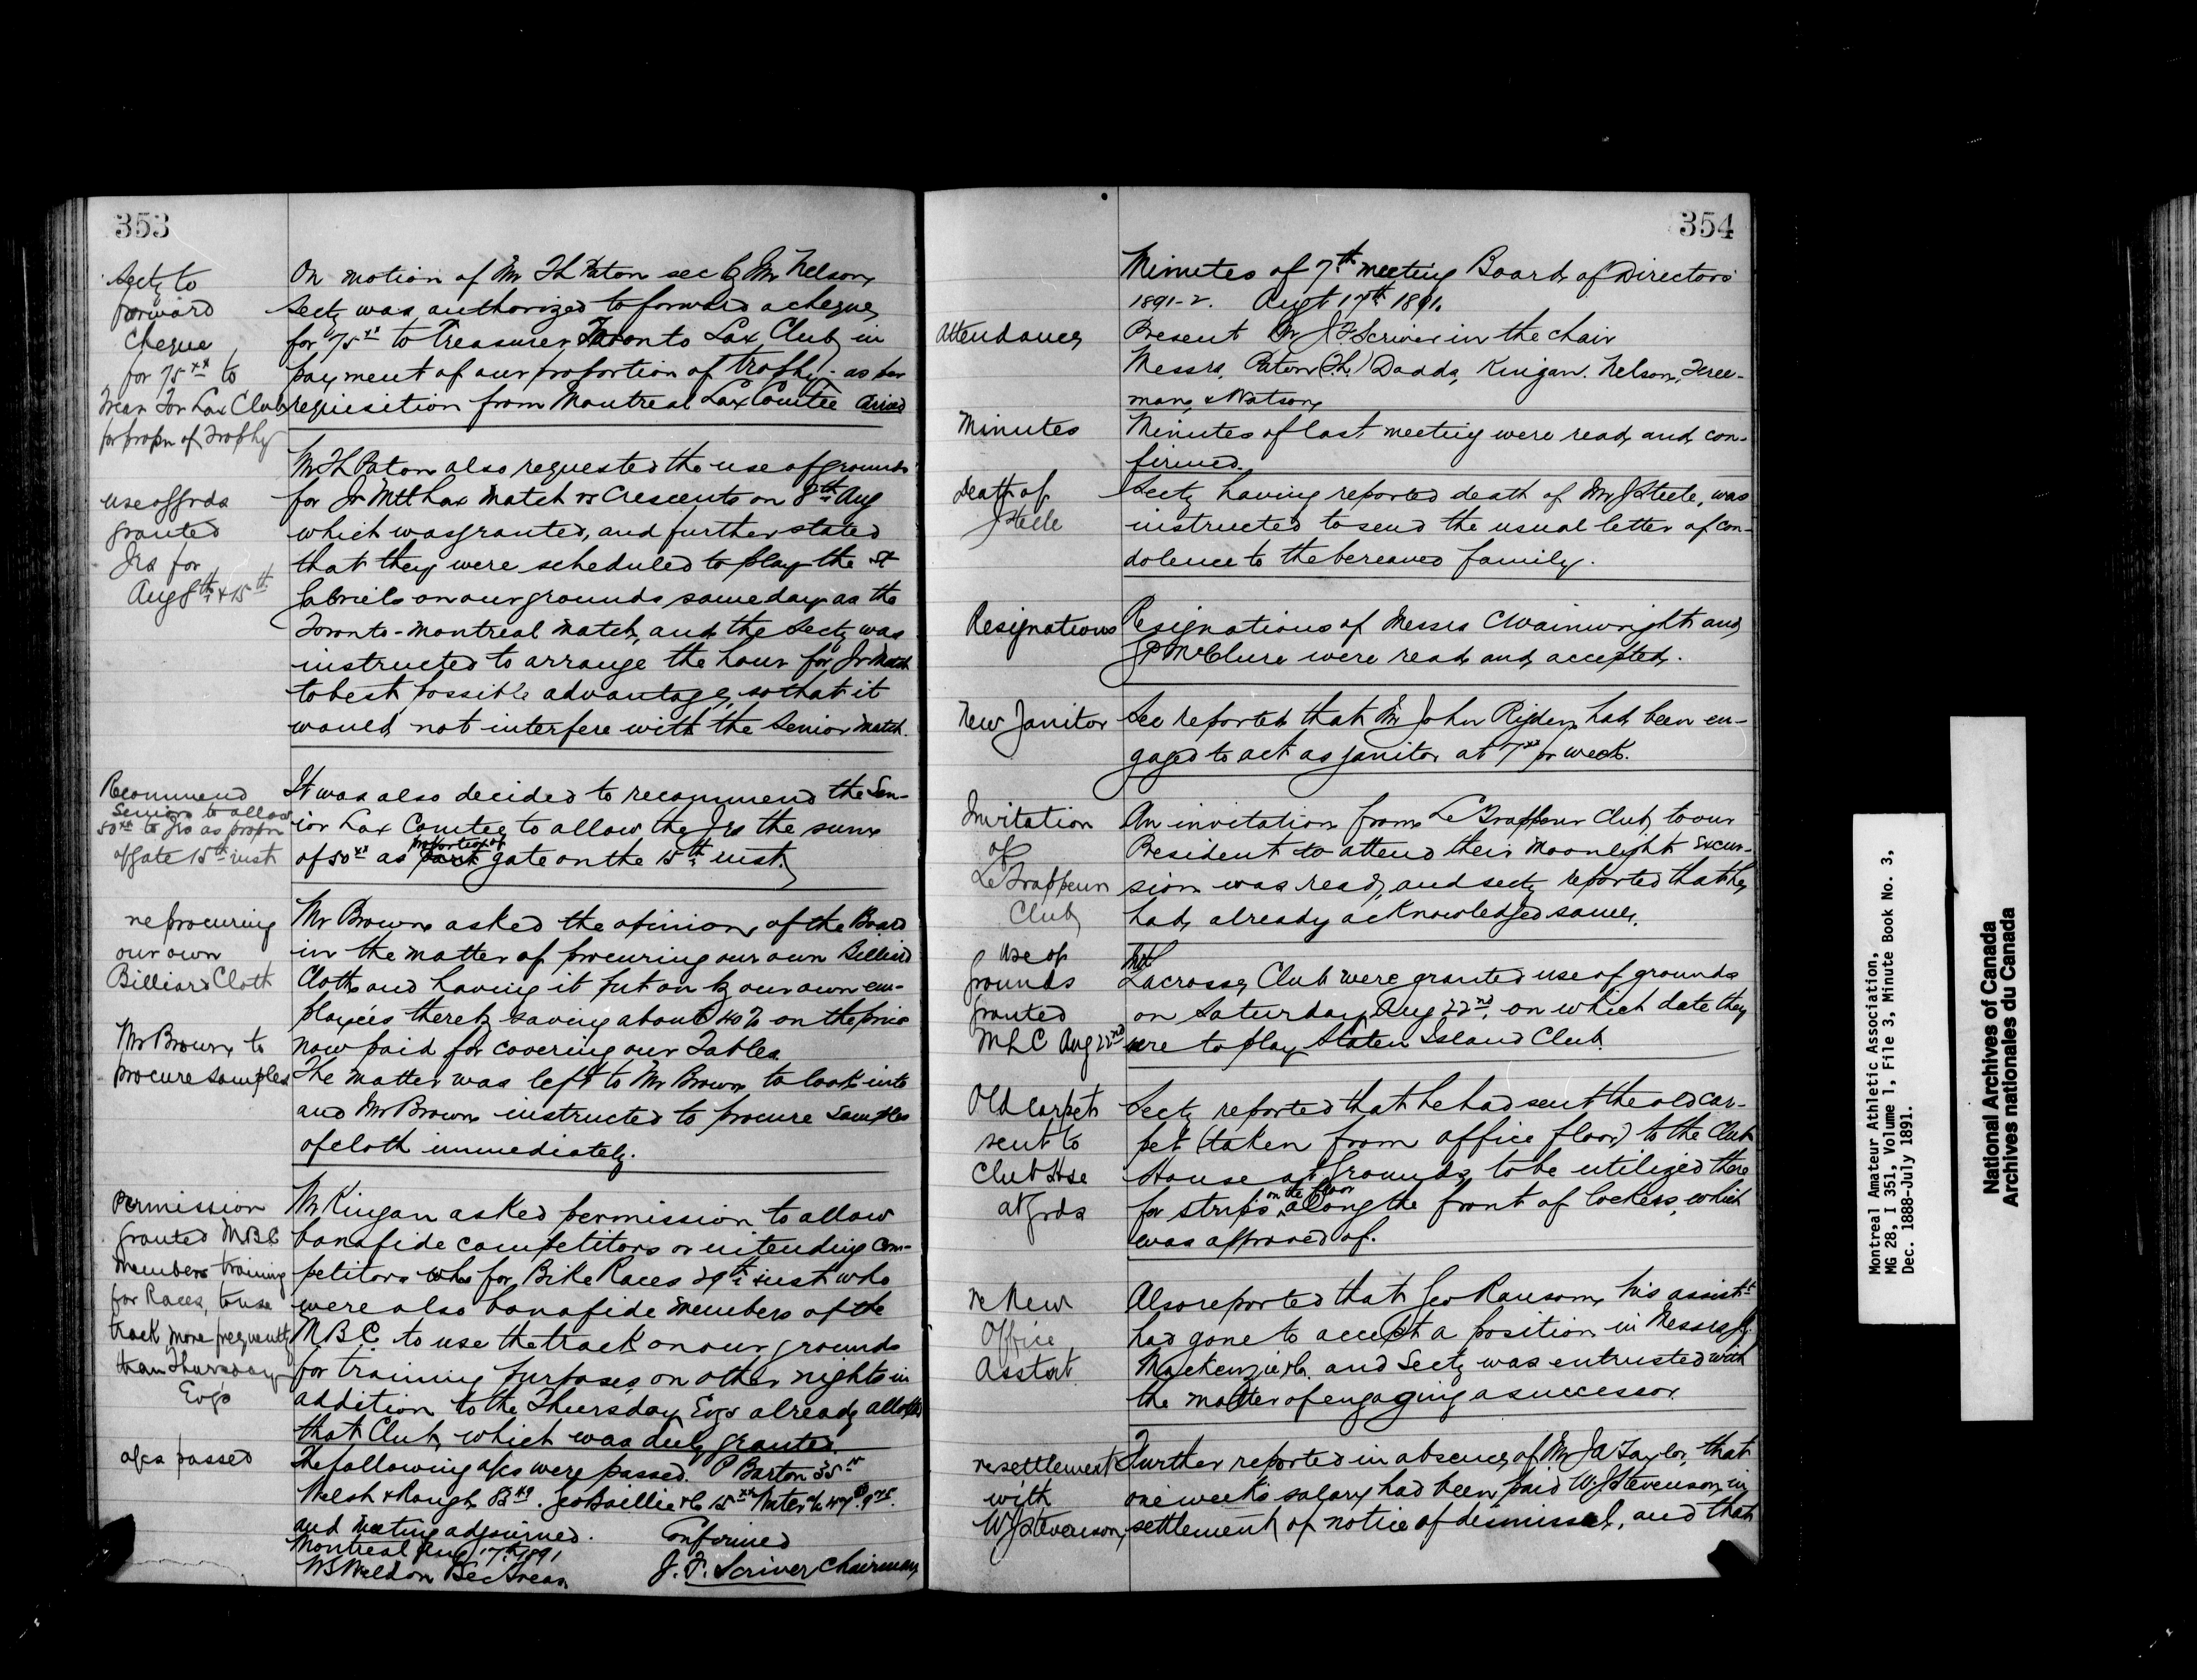 353
Secty to
forward
Cheque
for 75xx to
Treas Tor Lax Club
for propn of Trophy
On motion of Mr Th Paton sec by Mr Nelson,
Secty was authorized to forward a cheque
for 75xx to Treasurer Toronto Lax Club in
payment of our proportion of trophy. as per
requisition from Montreal Lax Comtee Carried
use of grds
granted
Jrs for
Aug 8th & 15th
Mr Th Paton also requested the use of grounds
for Jr Mtl Lax Match vs Crescents on 8th Aug
which was granted, and further stated
that they were scheduled to play the St
Gabriels on our grounds same day as the
Toronto-Montreal Match, and the Secty was
instructed to arrange the hour for Jr Match
to best possible advantage, so that it
would not interfere with the Senior Match.
Recommend
Seniors to allow
50xx to Jrs as propn
of gate 15th inst
It was also decided to recommend the Sen-
ior Lax Comtee to allow the Jrs the sum
of 50xx as proportion of gate on the 15th inst.
re procuring
our own
Billiard Cloth
Mr Brown to
procure samples
Mr Brown asked the opinion of the Board
in the matter of procuring our own Billiard
Cloth and having it put on by our own em-
ployees thereby saving about 40% on the price
now paid for covering our Tables.
The matter was left to Mr Brown to look into
and Mr Brown instructed to procure samples
of cloth immediately.
Permission
granted MBC
members training
for Races, to use
track more frequently
than Thursday
Evgs
Mr Kingan asked permission to allow
bonafide competitors or intending com-
petitors who for Bike Races 29th inst who
were also bonafide members of the
M.B.C. to use the track on our grounds
for training purposes on other nights in
addition to the Thursday Evgs already allotted
that Club, which was duly granted.
a/cs passed
The following a/cs were passed. P Barton 35
Walsh & Rough . Geo Baillie & Co 15xx Water
and meeting adjourned. Confirmed
Montreal Aug 17th 1891
WS Weldon Sec Treas J. F. Scriver Chairman
354
Minutes of 7th meeting Board of Directors
1891-2. Augt 17th 1891.
Attendance
Present Mr J F Scriver in the chair
Messrs, Paton (Th.) Dadds, Kingan. Nelson, Free-
man, & Watson,
Minutes
Minutes of last meeting were read, and con-
firmed.
Death of
J Steele
Secty having reported death of Mr J Steele, was
instructed to send the usual letter of con-
dolence to the bereaved family.
Resignations
Resignations of Messrs C Wainwright and
J P McClure were read, and accepted.
New Janitor
Sec reported that Mr John Rigden had been en-
gaged to act as janitor at 7xx pr week.
Invitation
of
Le Trappeur
Club
An invitation from Le Trappeur Club, to our
President to attend their Moonlight Excur-
sion was read, and secty reported that he
had, already acknowledged same,
Use of
grounds
granted
MLC Aug 22nd
Mtl
Lacrosse, Club were granted use of grounds
on Saturday Aug 22nd, on which date they
were to play Staten Island Club.
Old carpet
sent to
Club Hse
at grds
Secty reported that he had sent the old car-
pet (taken from office floor) to the Club
House at Grounds, to be utilized there
for strips on the floor along the front of lockers, which
was approved of.
re New
Office
Asstnt
Also reported that Geo Ransom, his assistt
had gone to accept a position in Messrs
Mackenzie & Co. and Secty was entrusted with
the matter of engaging a successor.
re settlement
with
W J Stevenson,
Further reported in absence of Mr J A Taylor, that
one week's salary had been paid W J Stevenson, in
settlement of notice of dismissal, and that
Montreal Amateur Athletic Association,
MG 28, I 351, Volume 1, File 3, Minute Book No. 3,
Dec. 1888-July 1891.
National Archives of Canada
Archives nationales du Canada